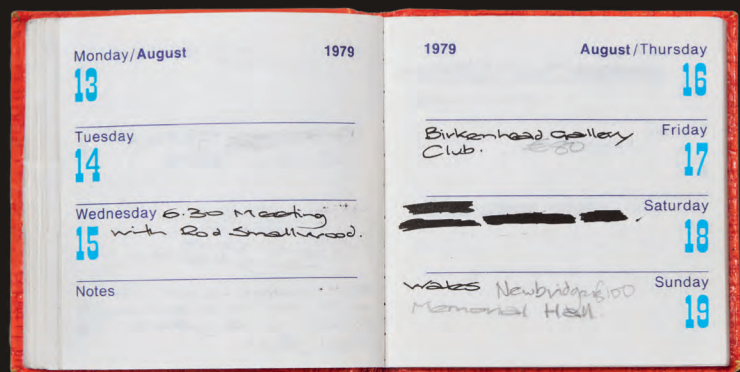 Monday/August 1979
13
Tuesday
14
Wednesday 6.30 Meeting
15 with Rod Smallwood.
Notes
1979 August/Thursday
16
Birkenhead Gallery Friday
Club. £80 17
Saturday
18
Wales Newbridge £100 Sunday
Memorial Hall. 19